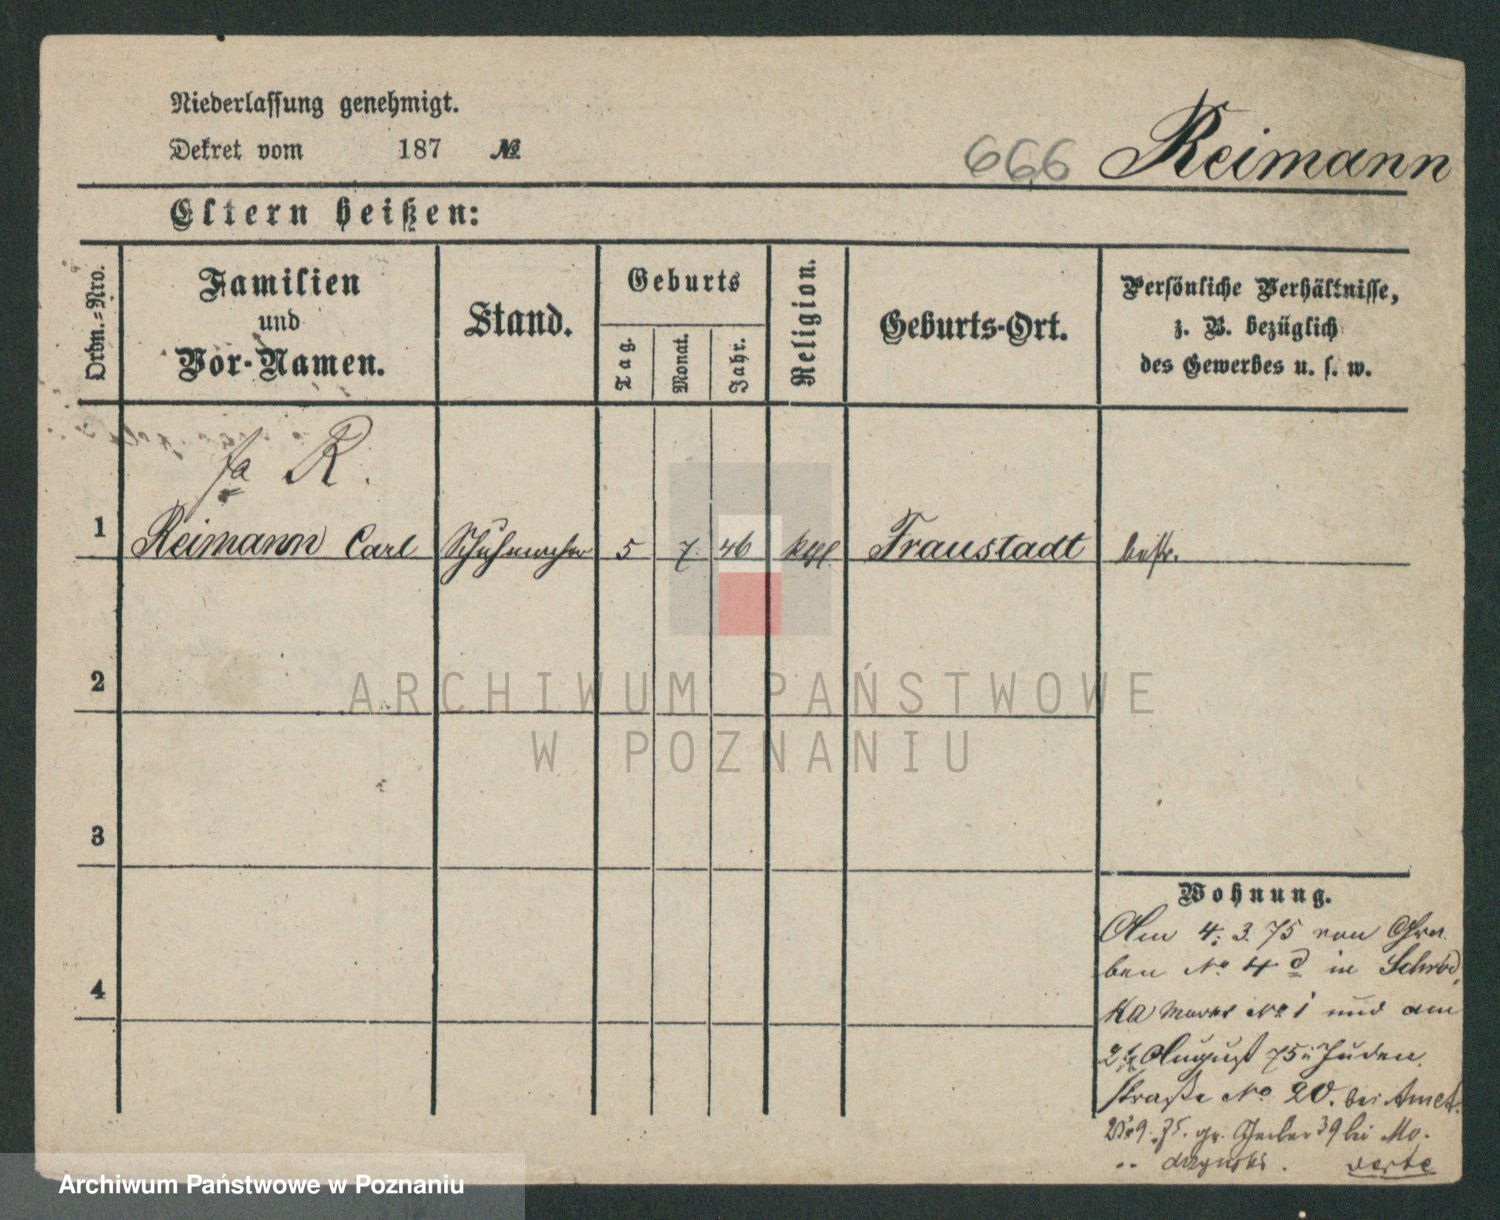 Niederlassung genehmigt.
Dekret vom 187 №
666 Reimann
Eltern heißen:
Ordn.=Nro.
Familien
und
Vor-Namen.
Stand.
Geburts
Tag.
Monat.
Jahr.
Religion.
Geburts-Ort.
Persönliche Verhältnisse,
z. B. bezüglich
des Gewerbes u. s. w.
R.
1 Reimann Carl Schuhmacher 5 7. 46 Fraustadt
2
3
4
Wohnung.
Am 4. 3. 75 von Gra
ben No 4 d in Schrod
ka Markt No 1 und am
August 75 Juden
straße No 20. bei
75. gr. 39 bei Mo.
verte
ARCHIWUM PAŃSTWOWE
W POZNANIU
Archiwum Państwowe w Poznaniu